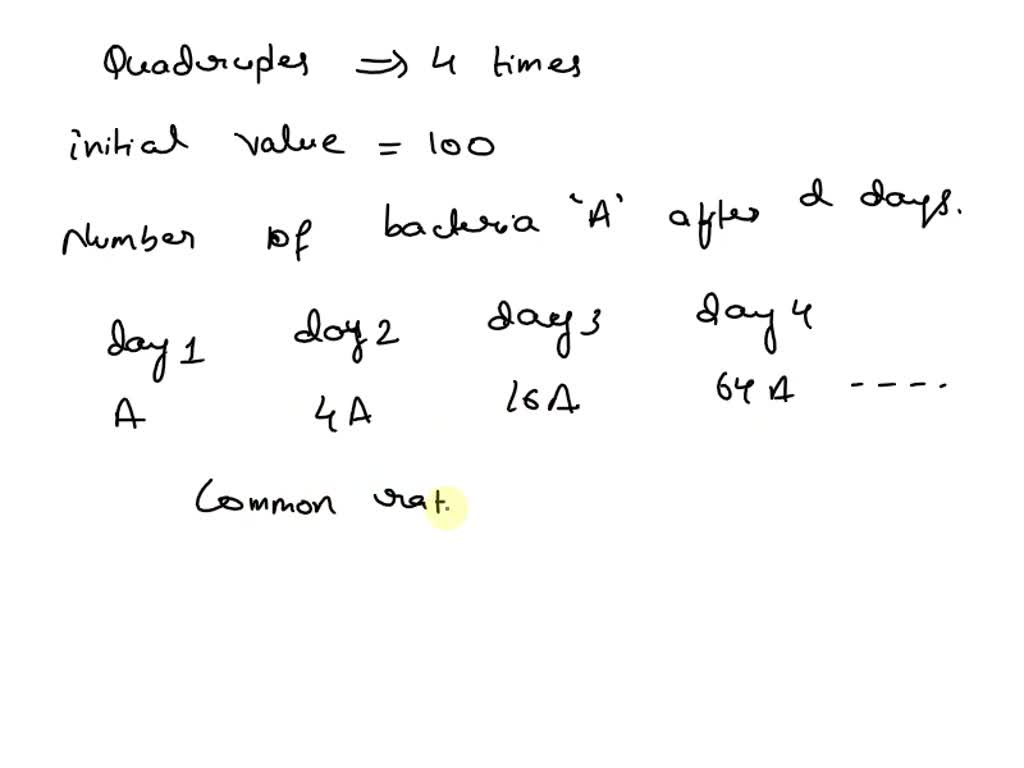 Quadruples ⇒ 4 times
initial value = 100
Number of bacteria 'A' after d days.
day 1 day 2 day 3 day 4
A 4A 16A 64A ----.
Common rat.